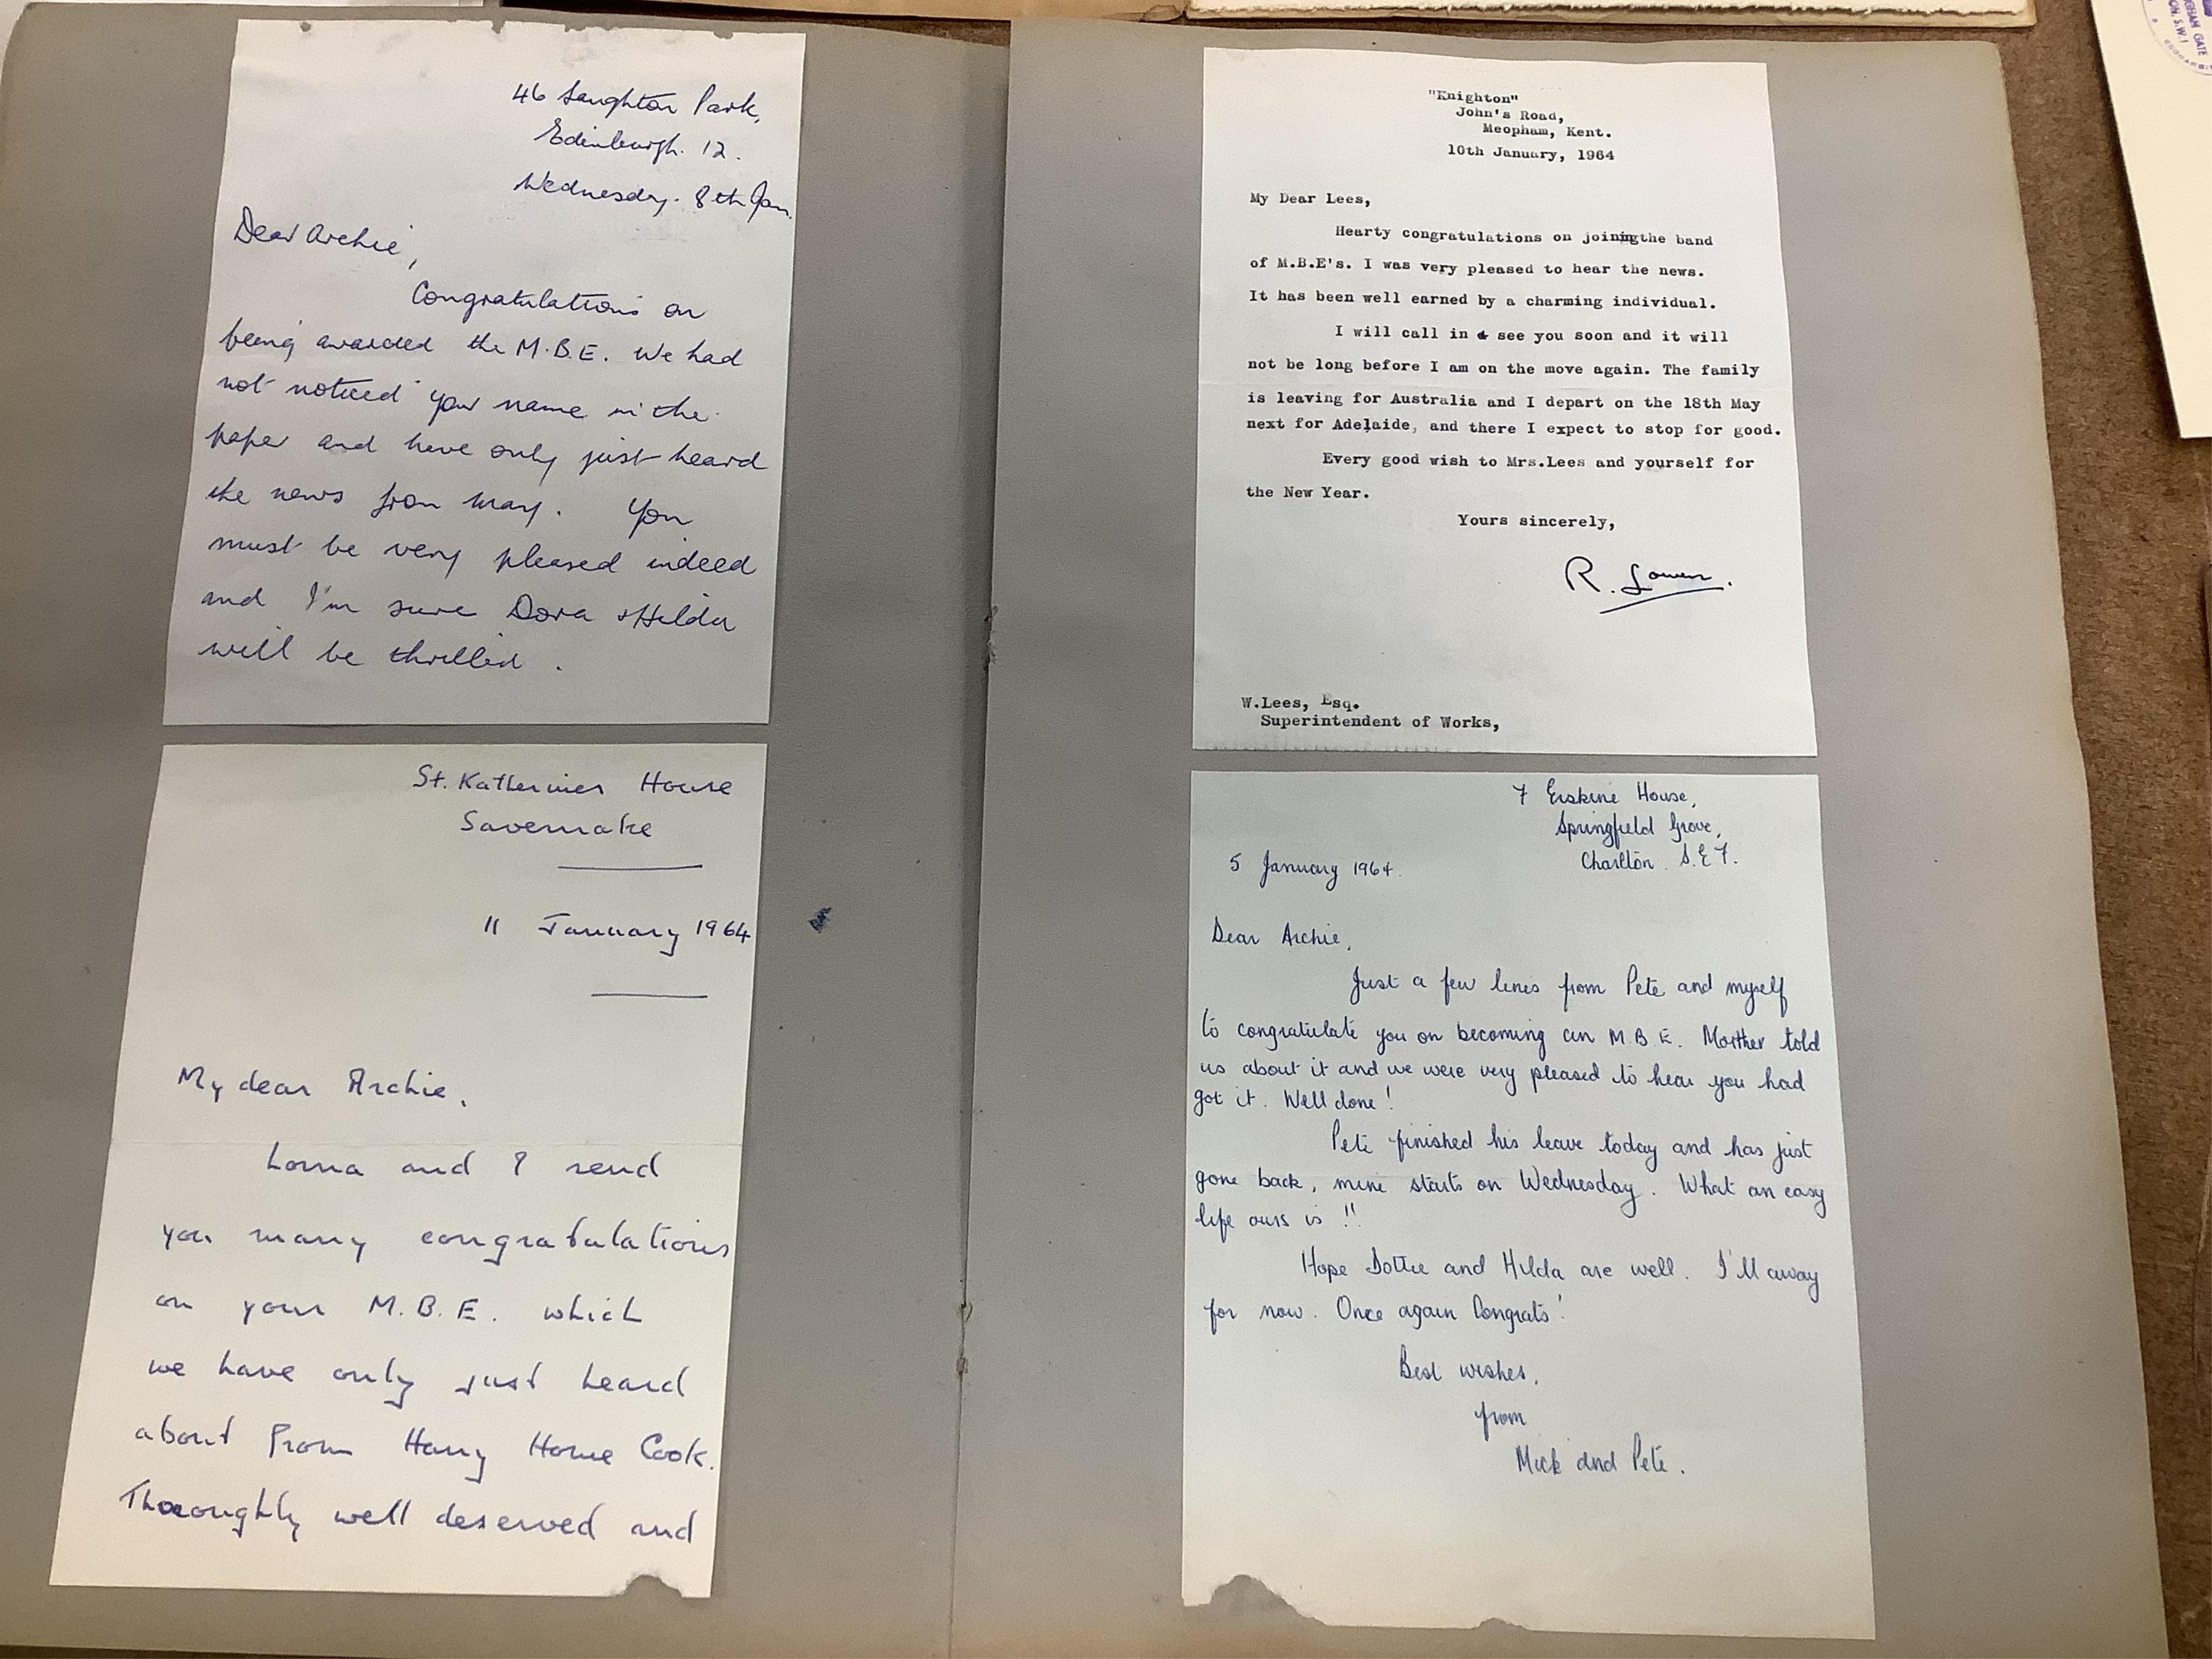 46 Saughton Park,
Edinburgh. 12.
Wednesday. 8th Jan.
Dear Archie,
Congratulations on
being awarded the M.B.E. We had
not noticed your name in the
paper and have only just heard
the news from May. You
must be very pleased indeed
and I'm sure Dora & Hilda
will be thrilled.
St. Katherines House
Savernake
11 January 1964
My dear Archie,
Lorna and I send
you many congratulations
on your M.B.E. which
we have only just heard
about from Harry Horne Cook.
Thoroughly well deserved and
"Knighton"
John's Road,
Meopham, Kent.
10th January, 1964
My Dear Lees,
Hearty congratulations on joiningthe band
of M.B.E's. I was very pleased to hear the news.
It has been well earned by a charming individual.
I will call in & see you soon and it will
not be long before I am on the move again. The family
is leaving for Australia and I depart on the 18th May
next for Adelaide, and there I expect to stop for good.
Every good wish to Mrs.Lees and yourself for
the New Year.
Yours sincerely,
R.
W.Lees, Esq.
Superintendent of Works,
7 Erskine House,
Springfield Grove,
Charlton. S.E 7.
5 January 1964.
Dear Archie,
Just a few lines from Pete and myself
to congratulate you on becoming an M.B.E. Mother told
us about it and we were very pleased to hear you had
got it. Well done!
Pete finished his leave today and has just
gone back, mine starts on Wednesday. What an easy
life ours is!!
Hope Dottie and Hilda are well. I'll away
for now. Once again Congrats!
Best wishes,
from
Mick and Pete.
GATE
ON, S.W.1